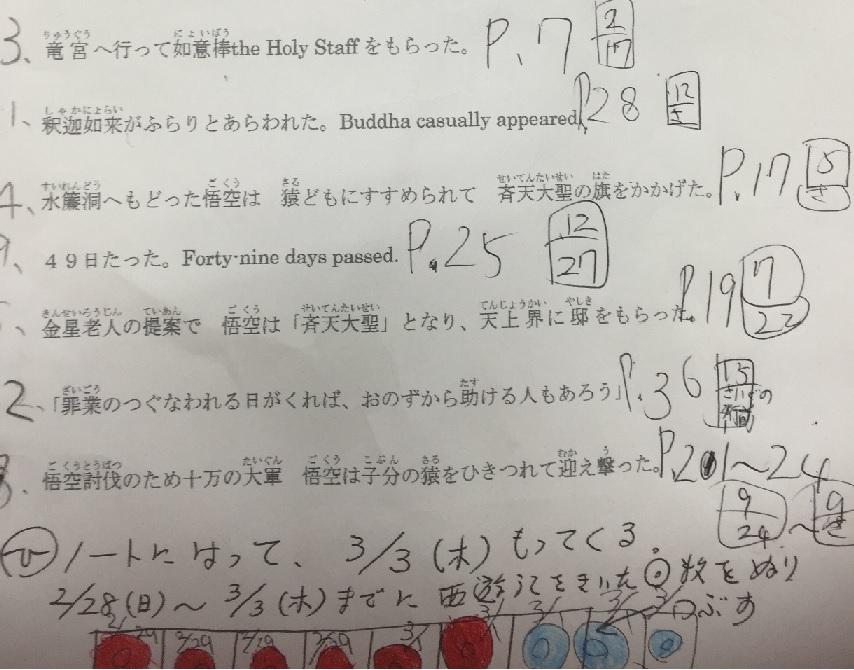 3、竜宮へ行って如意棒the Holy Staffをもらった。 P.7 2/17
1、釈迦如来がふらりとあらわれた。Buddha casually appeared. P.28 12/さ
4、水簾洞へもどった悟空は 猿どもにすすめられて 斉天大聖の旗をかかげた。 P.17 5/さ
49日たった。Forty-nine days passed. P.25 12/27
金星老人の提案で 悟空は「斉天大聖」となり、天上界に邸をもらった。 P.19 7/22
2、「罪業のつぐなわれる日がくれば、おのずから助ける人もあろう」 P.36 15
悟空討伐のため十万の大軍 悟空は子分の猿をひきつれて迎え撃った。 P.21~24
9/24 ~ 9/さ
ノートにはって、3/3(木)もってくる。
2/28(日)~3/3(木)までに西遊記をきいた◎数をぬり
つぶす
2/29 2/29 2/29 3/1 3/1 3/1